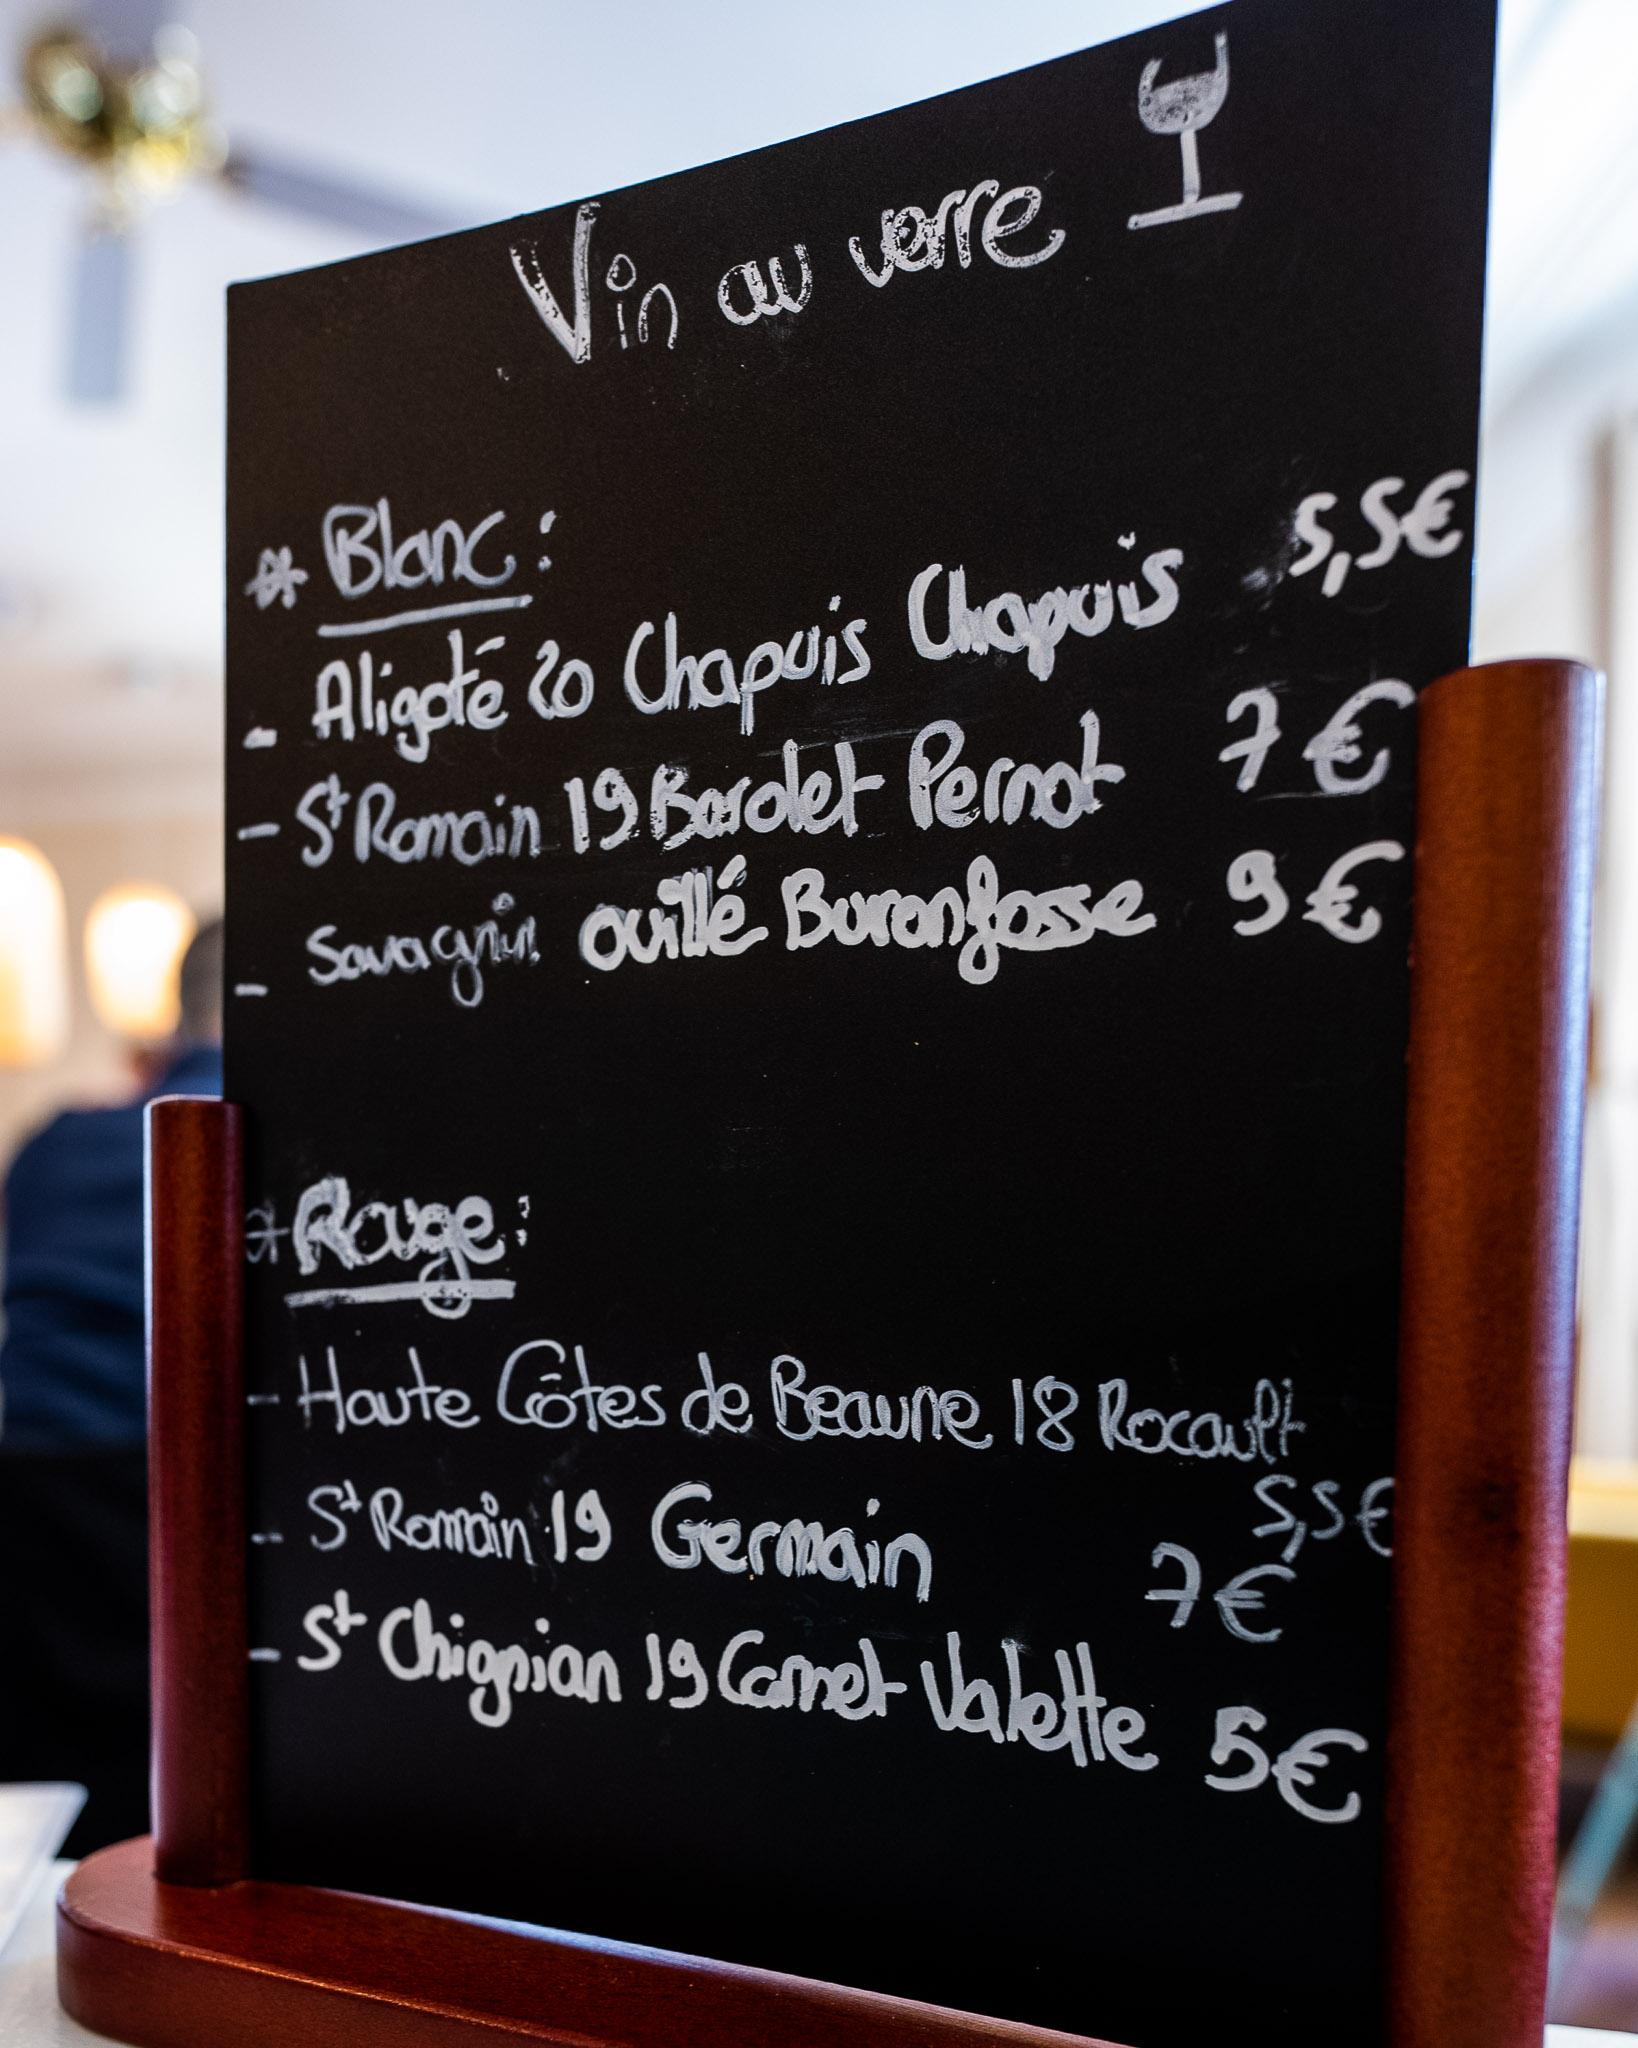 Vin au verre
* Blanc :
- Aligoté 20 Chapuis Chapuis 5,5€
- St Romain 19 Barolet Pernot 7€
- Savagnin ouillé Buronfosse 9€
* Rouge :
- Haute Côtes de Beaune 18 Rocault
5,5€
- St Romain 19 Germain 7€
- St Chignian 19 Carnet Valette 5€